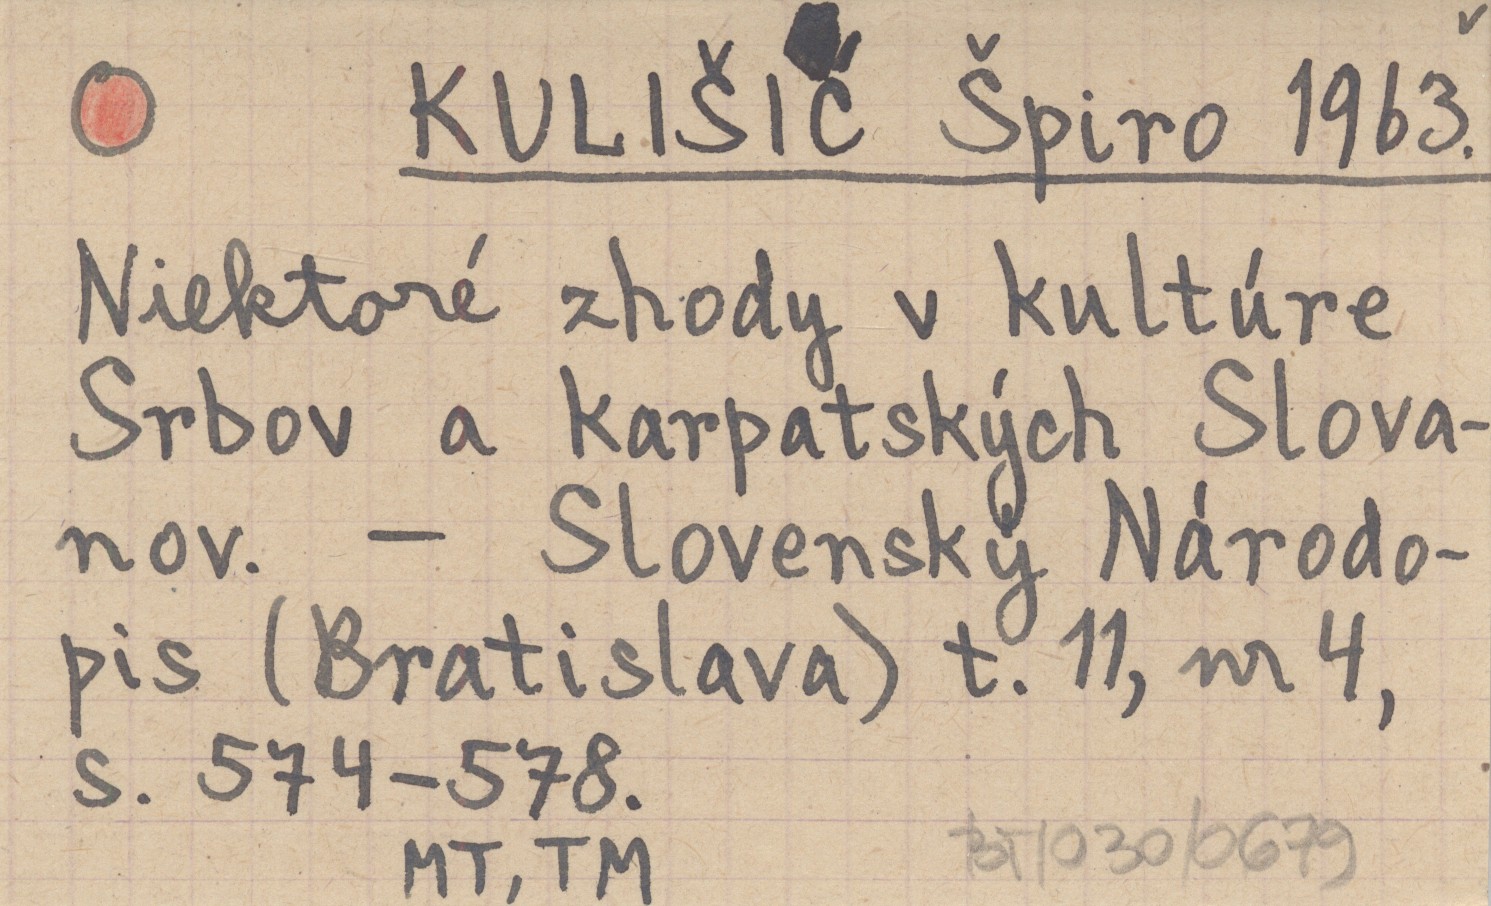 KULIŠIĆ Špiro 1963.
Niektoré zhody v kultúre
Srbov a karpatských Slova-
nov. — Slovenský Národo-
pis (Bratislava) t. 11, nr 4,
s. 574-578.
MT, TM
BT/030/0679